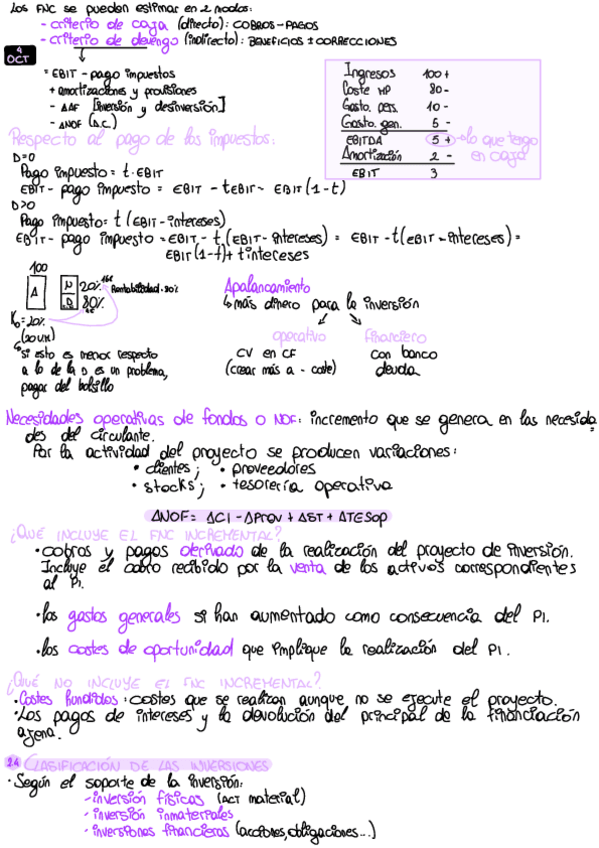 Los FNC se pueden estimar en 2 modos:
- criterio de caja (directo): COBROS - PAGOS
- criterio de devengo (indirecto): BENEFICIOS ± CORRECCIONES
4 OCT
= EBIT - pago impuestos
+ amortizaciones y provisiones
- ΔAF [inversión y desinversión]
- ΔNOF (A.C.)
Ingresos 100 +
Coste MP 80 -
Gasto. pers. 10 -
Gasto. gen. 5 -
EBITDA 5 + → lo que tengo en caja
Amortización 2 -
EBIT 3
Respecto al pago de los impuestos:
D=0
Pago impuesto = t · EBIT
EBIT - pago impuesto = EBIT - tEBIT - EBIT (1-t)
D>0
Pago impuesto= t (EBIT - intereses)
EBIT - pago impuesto = EBIT - t (EBIT - intereses) = EBIT - t(EBIT - intereses) =
EBIT (1-t)+ t intereses
100
A
N 20%
D 80%
Rentabilidad = 20%
K₀ = 20%
(20 um)
↳ si esto es menor respecto
a lo de la D es un problema,
pagar del bolsillo
Apalancamiento
↳ más dinero para la inversión
operativo
CV en CF
(crear más a - coste)
financiero
con banco
deuda
Necesidades operativas de fondos o NOF: incremento que se genera en las necesida
des del circulante.
Por la actividad del proyecto se producen variaciones:
• clientes; • proveedores
• stocks; • tesorería operativa
ΔNOF = ΔCl - ΔProv + ΔST + ΔTESop
¿QUÉ INCLUYE EL FNC INCREMENTAL?
• cobros y pagos derivado de la realización del proyecto de inversión.
Incluye el cobro recibido por la venta de los activos correspondientes
al PI.
• los gastos generales si han aumentado como consecuencia del PI.
• los costes de oportunidad que implique la realización del PI.
¿QUÉ NO INCLUYE EL FNC INCREMENTAL?
• Costes hundidos: costes que se realizan aunque no se ejecute el proyecto.
• Los pagos de intereses y la devolución del principal de la financiación
ajena.
2.4 CLASIFICACIÓN DE LAS INVERSIONES
• Según el soporte de la inversión:
- inversión físicas (ACT material)
- inversión inmateriales
- inversiones financieras (acciones, obligaciones...)